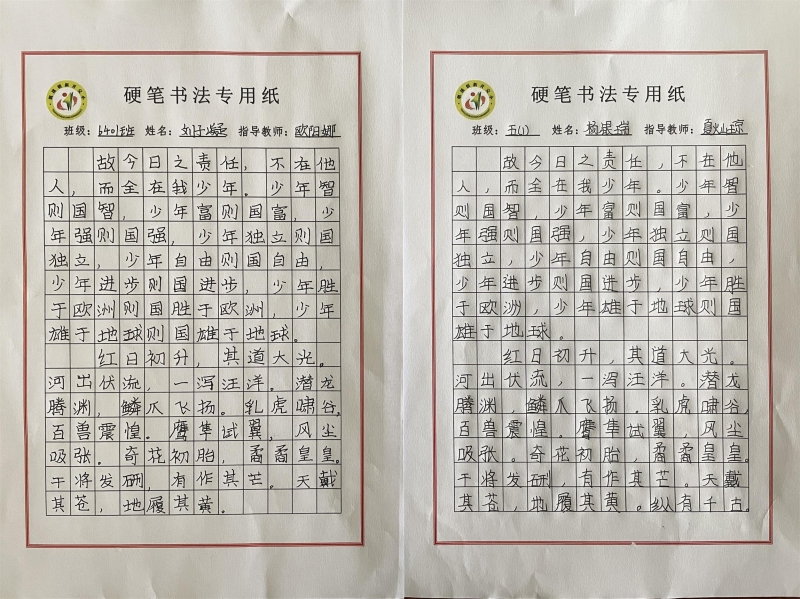 硬笔书法专用纸
班级: 姓名: 指导教师:欧阳娜
故今日之责任,不在他
人,而全在我少年。少年智
则国智,少年富则国富,少
年强则国强,少年独立则国
独立,少年自由则国自由,
少年进步则国进步,少年胜
于欧洲则国胜于欧洲,少年
雄于地球则国雄于地球。
红日初升,其道大光。
河出伏流,一泻汪洋。潜龙
腾渊,鳞爪飞扬。乳虎啸谷,
百兽震惶。鹰隼试翼,风尘
吸张。奇花初胎,矞矞皇皇。
干将发硎,有作其芒。天戴
其苍,地履其黄。
硬笔书法专用纸
班级:五(1) 姓名: 指导教师:
故今日之责任,不在他
人,而全在我少年。少年智
则国智,少年富则国富,少
年强则国强,少年独立则国
独立,少年自由则国自由,
少年进步则国进步,少年胜
于欧洲,少年雄于地球则国
雄于地球。
红日初升,其道大光。
河出伏流,一泻汪洋。潜龙
腾渊,鳞爪飞扬。乳虎啸谷,
百兽震惶。鹰隼试翼,风尘
吸张。奇花初胎,矞矞皇皇。
干将发硎,有作其芒。天戴
其苍,地履其黄。纵有千古